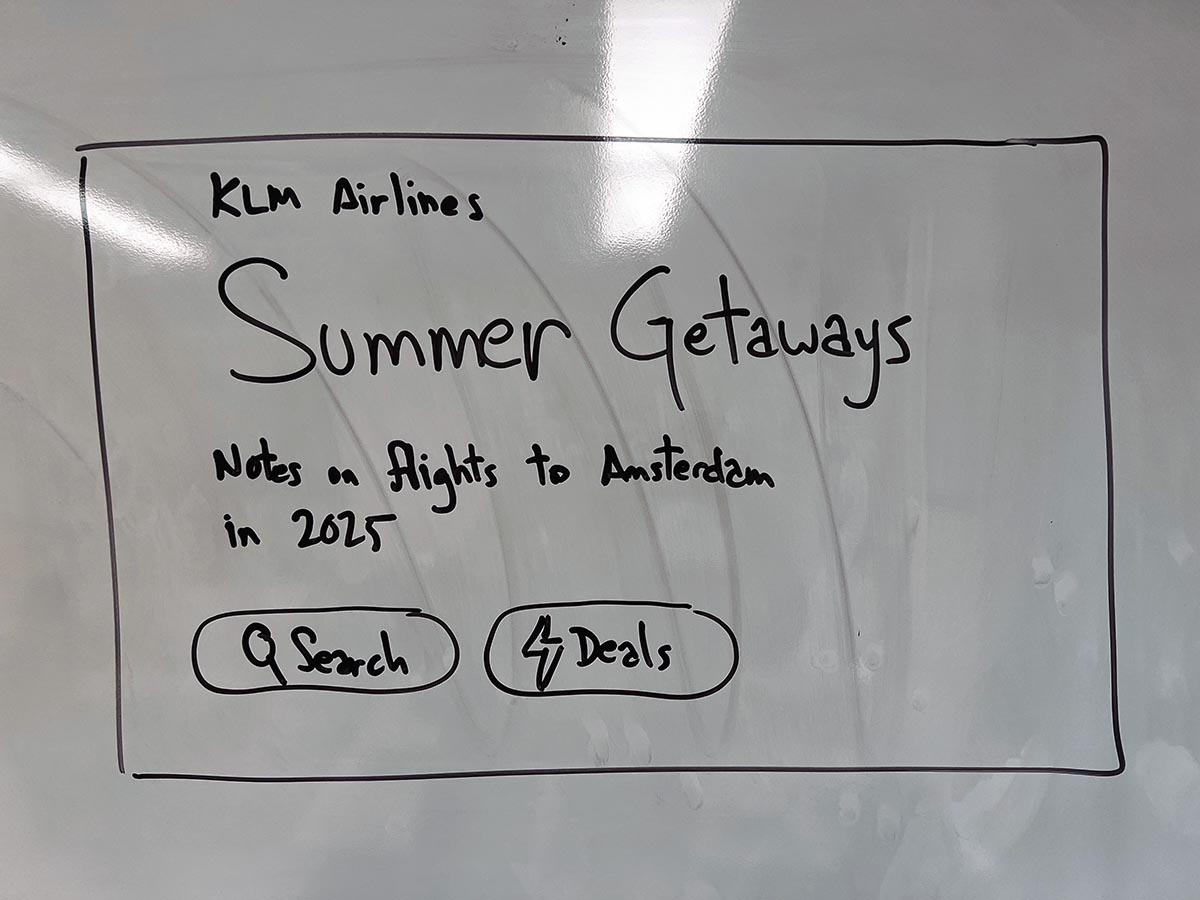 KLM Airlines
Summer Getaways
Notes on flights to Amsterdam
in 2025
Search
Deals